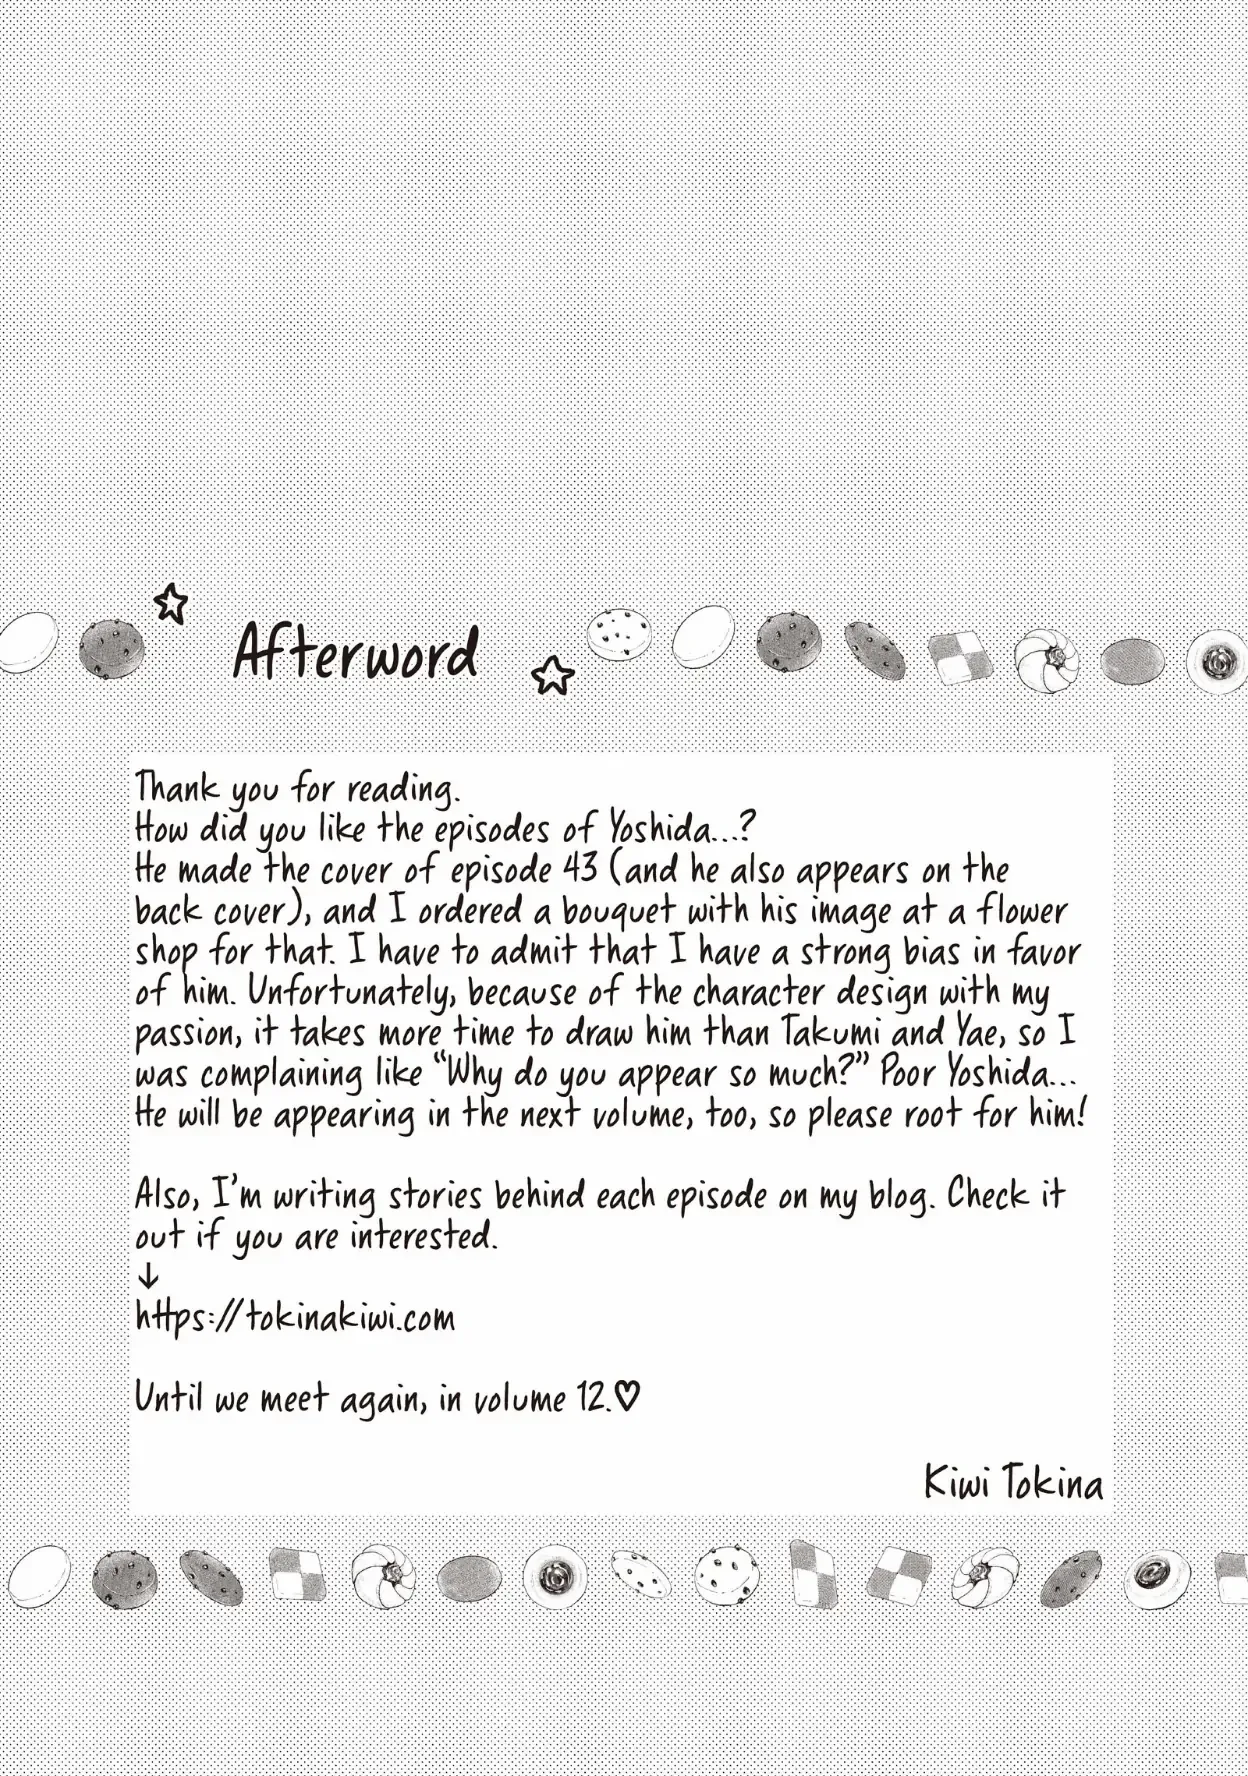 Afterword
Thank you for reading.
How did you like the episodes of Yoshida...?
He made the cover of episode 43 (and he also appears on the
back cover), and I ordered a bouquet with his image at a flower
shop for that. I have to admit that I have a strong bias in favor
of him. Unfortunately, because of the character design with my
passion, it takes more time to draw him than Takumi and Yae, so I
was complaining like “Why do you appear so much?” Poor Yoshida...
He will be appearing in the next volume, too, so please root for him!
Also, I'm writing stories behind each episode on my blog. Check it
out if you are interested.
↓
https://tokinakiwi.com
Until we meet again, in volume 12.♡
Kiwi Tokina